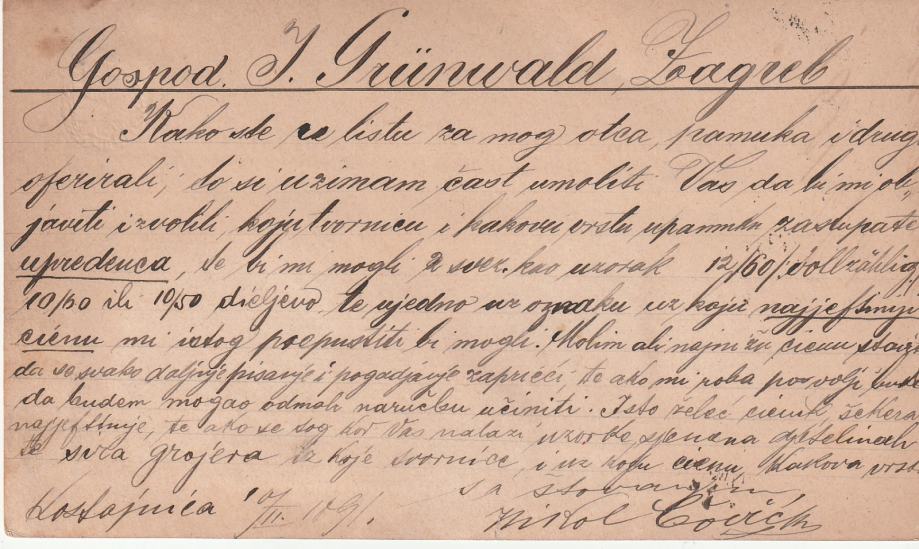 Gospod. I. Grünwald, Zagreb
Kako ste listu za mog otca, pamuka i drug
oferirali, to si uzimam čast umoliti Vas da bi mi ob-
javiti izvolili, koju tvornicu i kakovu vrstu u pamuku zastupate
upredenca, te bi mi mogli 2 svez. kao uzorak 12/60 /: vollzählig
10/60 ili 10/50 dieljevo te ujedno uz oznaku uz koju najjeftiniju
cienu mi istog popustiti bi mogli. Molim ali najnižu cienu
da se svako daljnje pisanje i pogadjanje zaprieči, te ako mi roba po volji
da budem mogao odmah naručbu učiniti. Isto želec cienik šećera
najjeftinije, te ako se tog kod Vas nalazi uzorke sjemena djetelinah
te sira grojera iz koje tvornice, i uz koju cienu, kakova vrst
sa štovanjem
Kostajnica II. 1891.
Nikol